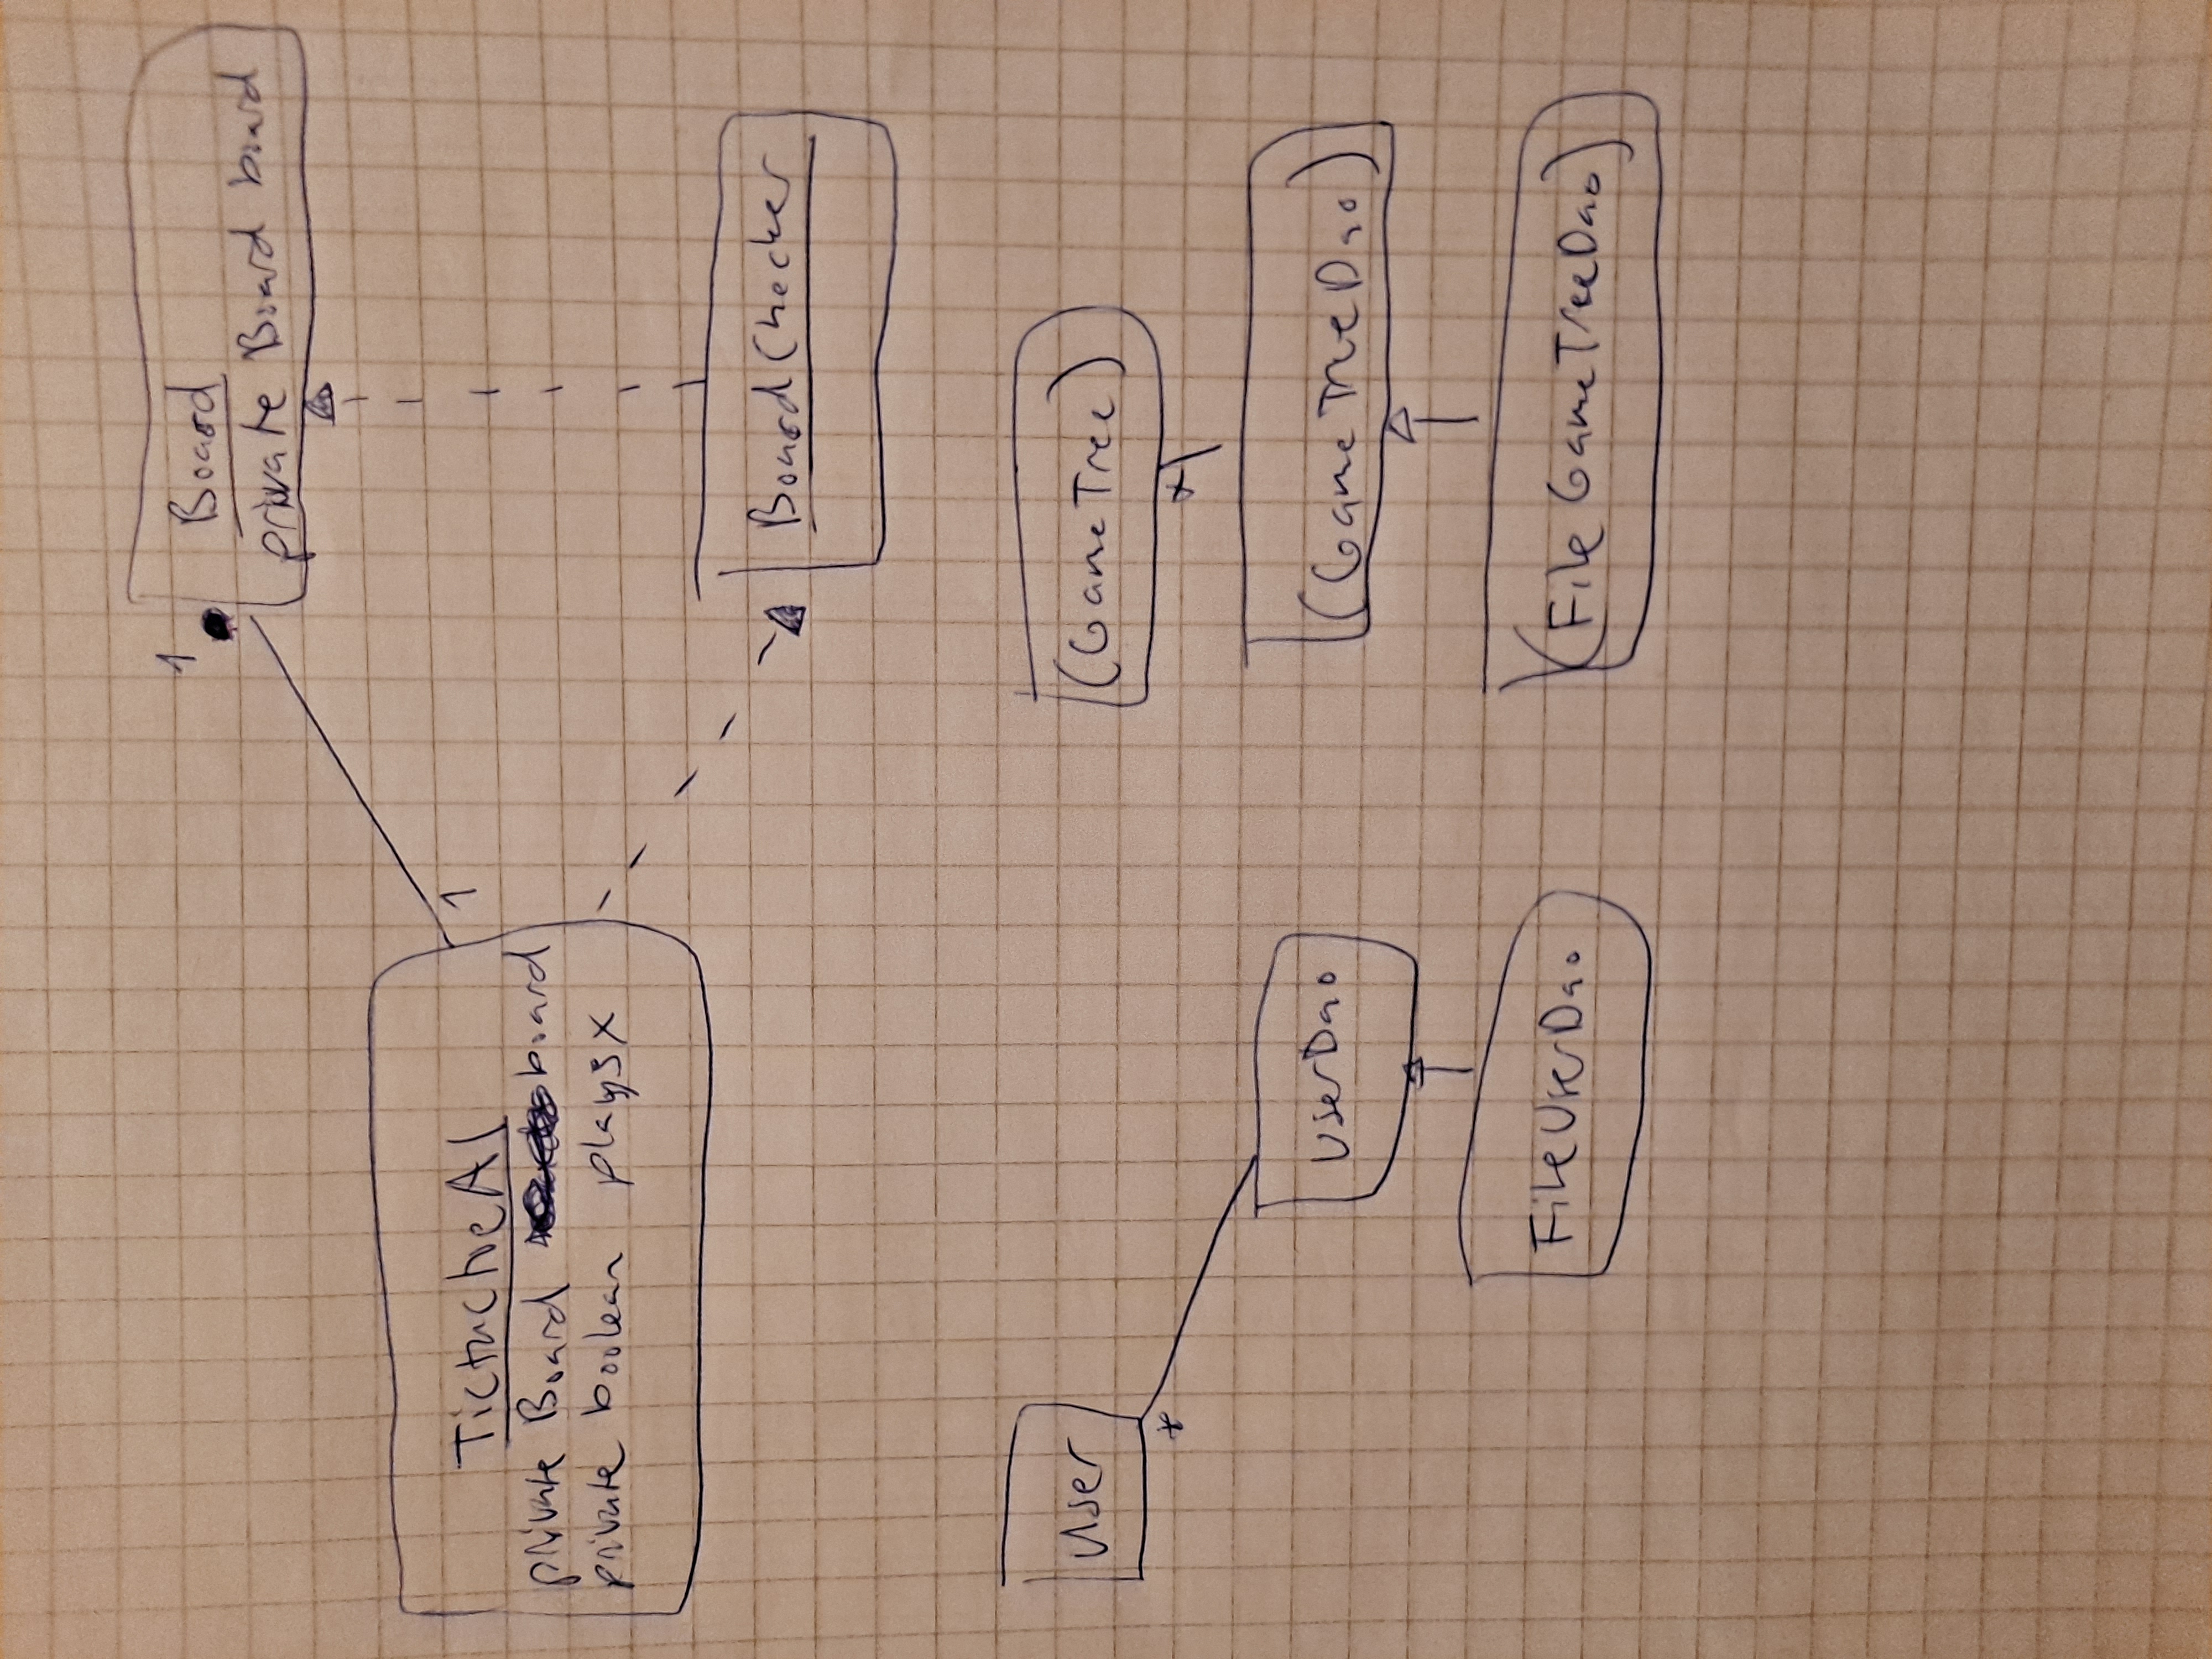 1
Board
private Board board
TictactoeAI
1
private Board board
private boolean playsx
BoardChecker
User
*
(GameTree)
*
UserDao
(GameTreeDao)
FileUserDao
(FileGameTreeDao)